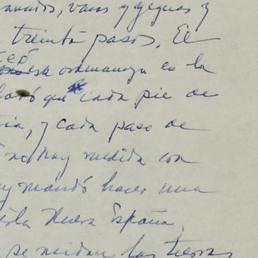 , vans y yeguas y
treinta pasos. El
esta ordenanza en la
que cada pie de
, y cada paso de
no hay medida con
y mandó hacer una
esta Nueva España,
se midan las tierras